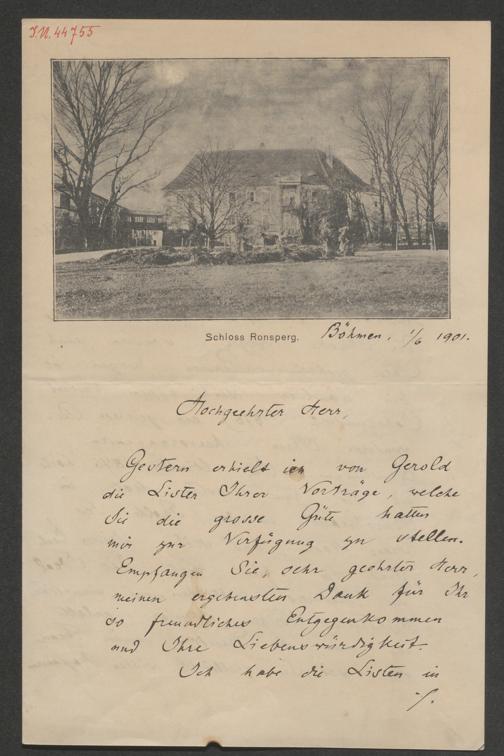 I.N. 44755
Schloss Ronsperg. Böhmen, 1/6 1901.
Hochgeehrter Herr,
Gestern erhielt ich von Gerold
die Listen Ihrer Vorträge, welche
Sie die grosse Güte hatten
mir zur Verfügung zu stellen.
Empfangen Sie, sehr geehrter Herr,
meinen ergebensten Dank für Ihr
so freundliches Entgegenkommen
und Ihre Liebenswürdigkeit.
Ich habe die Listen in
./.